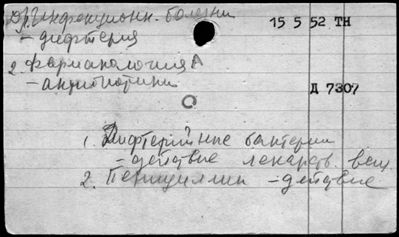 1. Инфекционн. болезни
15 5 52 ТН
- дифтерия
2. Фармакология А
- антибиотики
Д 7307
1. Дифтерийные бактерии
- действие лекарств. вещ.
2. Пенициллин - действие